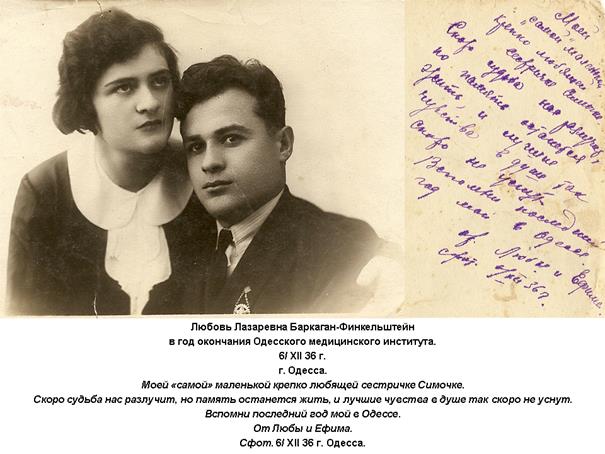 Моей
"самой" маленькой
крепко любящей
сестричке Симочке.
Скоро судьба нас разлучит,
но память останется
жить, и лучшие
чувства в душе так
скоро не уснут.
Вспомни последний
год мой в Одессе.
От Любы и Ефима.
Сфот. 6/XII 36 г.
Любовь Лазаревна Баркаган-Финкельштейн
в год окончания Одесского медицинского института.
6/ XII 36 г.
г. Одесса.
Моей «самой» маленькой крепко любящей сестричке Симочке.
Скоро судьба нас разлучит, но память останется жить, и лучшие чувства в душе так скоро не уснут.
Вспомни последний год мой в Одессе.
От Любы и Ефима.
Сфот. 6/ XII 36 г. Одесса.